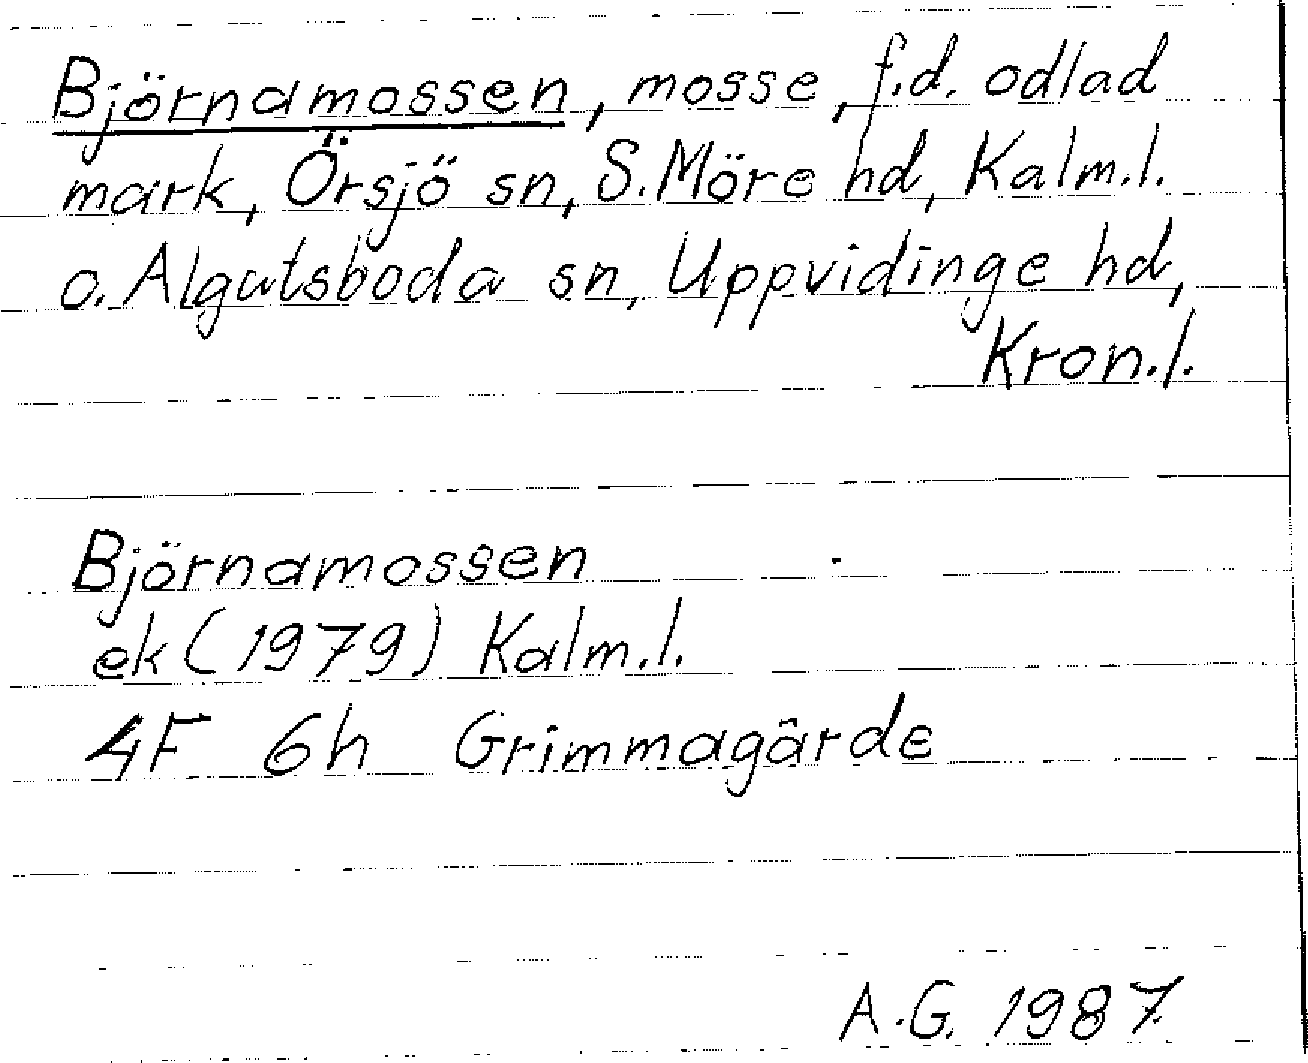 Björnamossen, mosse, f.d. odlad
mark, Örsjö sn, S. Möre hd, Kalm.l.
o. Algutsboda sn, Uppvidinge hd,
Kron.l.
Björnamossen
ek (1979) Kalm.l.
4F 6h Grimmagärde
A.G. 1987